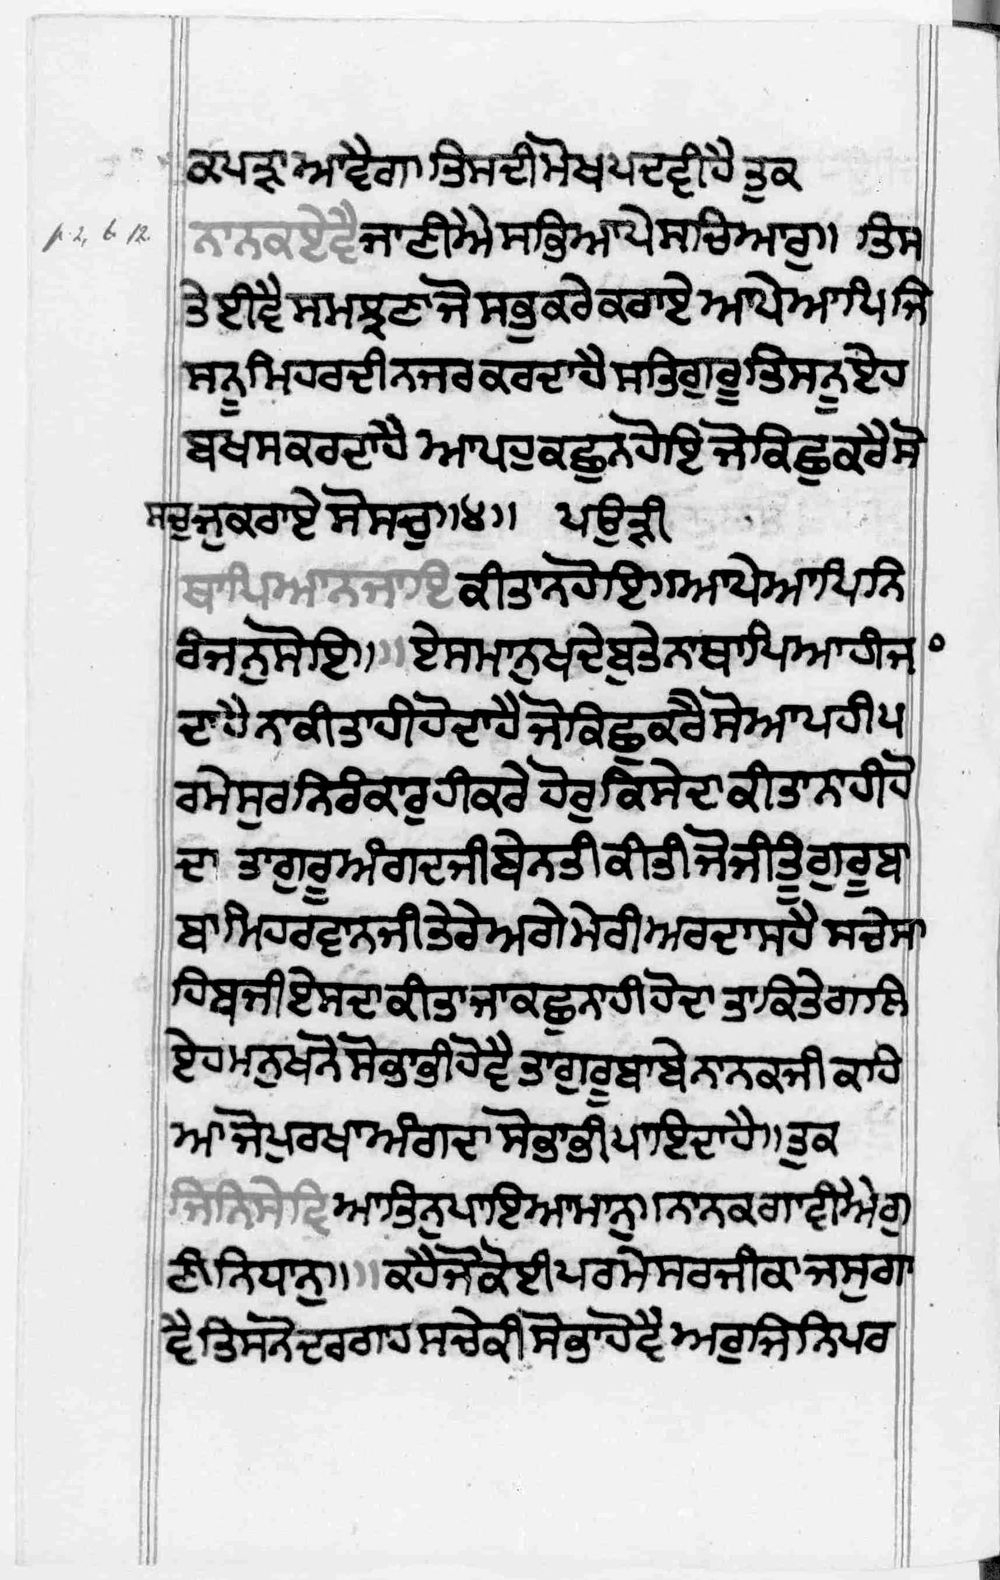 ਕਪੜਾ ਆਵੈਗਾ ਤਿਸਦੀ ਮੋਖ ਪਦਵੀ ਹੈ ਤੁਕ
p. 2, l. 12.
ਨਾਨਕ ਏਵੈ ਜਾਣੀਐ ਸਭਿ ਆਪੇ ਸਚਿਆਰੁ॥ ਤਿਸ
ਤੇ ਈਵੈ ਸਮਝਣਾ ਜੋ ਸਭੁ ਕਰੇ ਕਰਾਏ ਆਪੇ ਆਪਿ ਜਿ
ਸਨੂ ਮਿਹਰ ਦੀ ਨਜਰ ਕਰਦਾ ਹੈ ਸਤਿਗੁਰੂ ਤਿਸਨੂ ਏਹ
ਬਖਸ ਕਰਦਾ ਹੈ ਆਪਹੁ ਕਛੁ ਨ ਹੋਇ ਜੋ ਕਿਛੁ ਕਰੈ ਸੋ
ਸਚੁ ਜੁ ਕਰਾਏ ਸੋ ਸਚੁ॥੪॥ ਪਉੜੀ
ਥਾਪਿਆ ਨ ਜਾਇ ਕੀਤਾ ਨ ਹੋਇ॥ ਆਪੇ ਆਪਿ ਨਿ
ਰੰਜਨੁ ਸੋਇ॥ ਏਸ ਮਾਨੁਖ ਦੇ ਬੁਤੇ ਨਾ ਥਾਪਿਆ ਹੀ ਜ
ਦਾ ਹੈ ਨਾ ਕੀਤਾ ਹੀ ਹੋਦਾ ਹੈ ਜੋ ਕਿਛੁ ਕਰੈ ਸੋ ਆਪ ਹੀ ਪ
ਰਮੇਸੁਰ ਨਿਰੰਕਾਰੁ ਹੀ ਕਰੇ ਹੋਰੁ ਕਿਸੇ ਦਾ ਕੀਤਾ ਨਾਹੀ ਹੋ
ਦਾ ਤਾ ਗੁਰੂ ਅੰਗਦ ਜੀ ਬੇਨਤੀ ਕੀਤੀ ਜੋ ਜੀ ਤੂ ਗੁਰੂ ਬਾ
ਬਾ ਮਿਹਰਵਾਨ ਜੀ ਤੇਰੇ ਅਗੇ ਮੇਰੀ ਅਰਦਾਸ ਹੈ ਸਚੇ ਸਾ
ਹਿਬ ਜੀ ਏਸ ਦਾ ਕੀਤਾ ਜਾ ਕਛੁ ਨਾਹੀ ਹੋਦਾ ਤਾ ਕਿਤੇ ਗਲਿ
ਏਹ ਮਨੁਖ ਨੋ ਸੋਭਾ ਭੀ ਹੋਵੈ ਤਾ ਗੁਰੂ ਬਾਬੇ ਨਾਨਕ ਜੀ ਕਾਹਿ
ਆ ਜੋ ਪੁਰਖਾ ਅੰਗਦਾ ਸੋਭਾ ਭੀ ਪਾਇਦਾ ਹੈ॥ ਤੁਕ
ਜਿਨਿ ਸੇਵਿਆ ਤਿਨੁ ਪਾਇਆ ਮਾਨੁ। ਨਾਨਕ ਗਾਵੀਐ ਗੁ
ਣੀ ਨਿਧਾਨੁ॥ ਕਹੈ ਜੋ ਕੋਈ ਪਰਮੇਸਰ ਜੀ ਕਾ ਜਸੁ ਗਾ
ਵੈ ਤਿਸਨੋ ਦਰਗਹ ਸਚੇ ਕੀ ਸੋਭਾ ਹੋਵੈ ਅਰੁ ਜਿਨਿ ਪਰ